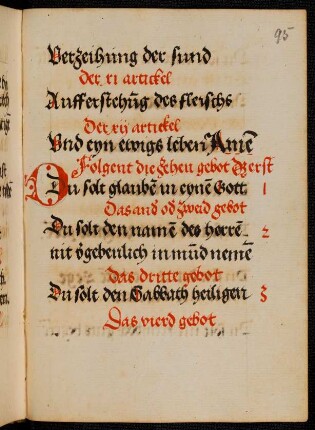 95
Verzeihung der sund
Der xi artickel
Aufferstehūg des fleischs
Der xij artickel
Vnd eyn ewigs leben Amē
Folgent die zheu gebot Das erst
Du solt glaubē in eynē Gott 1
Das and od zweid gebot
Du solt den namē des herrē 2
nit vgebenlich in mūd nemē
das dritte gebot
Du solt den Sabbath heiligen 3
Das vierd gebot